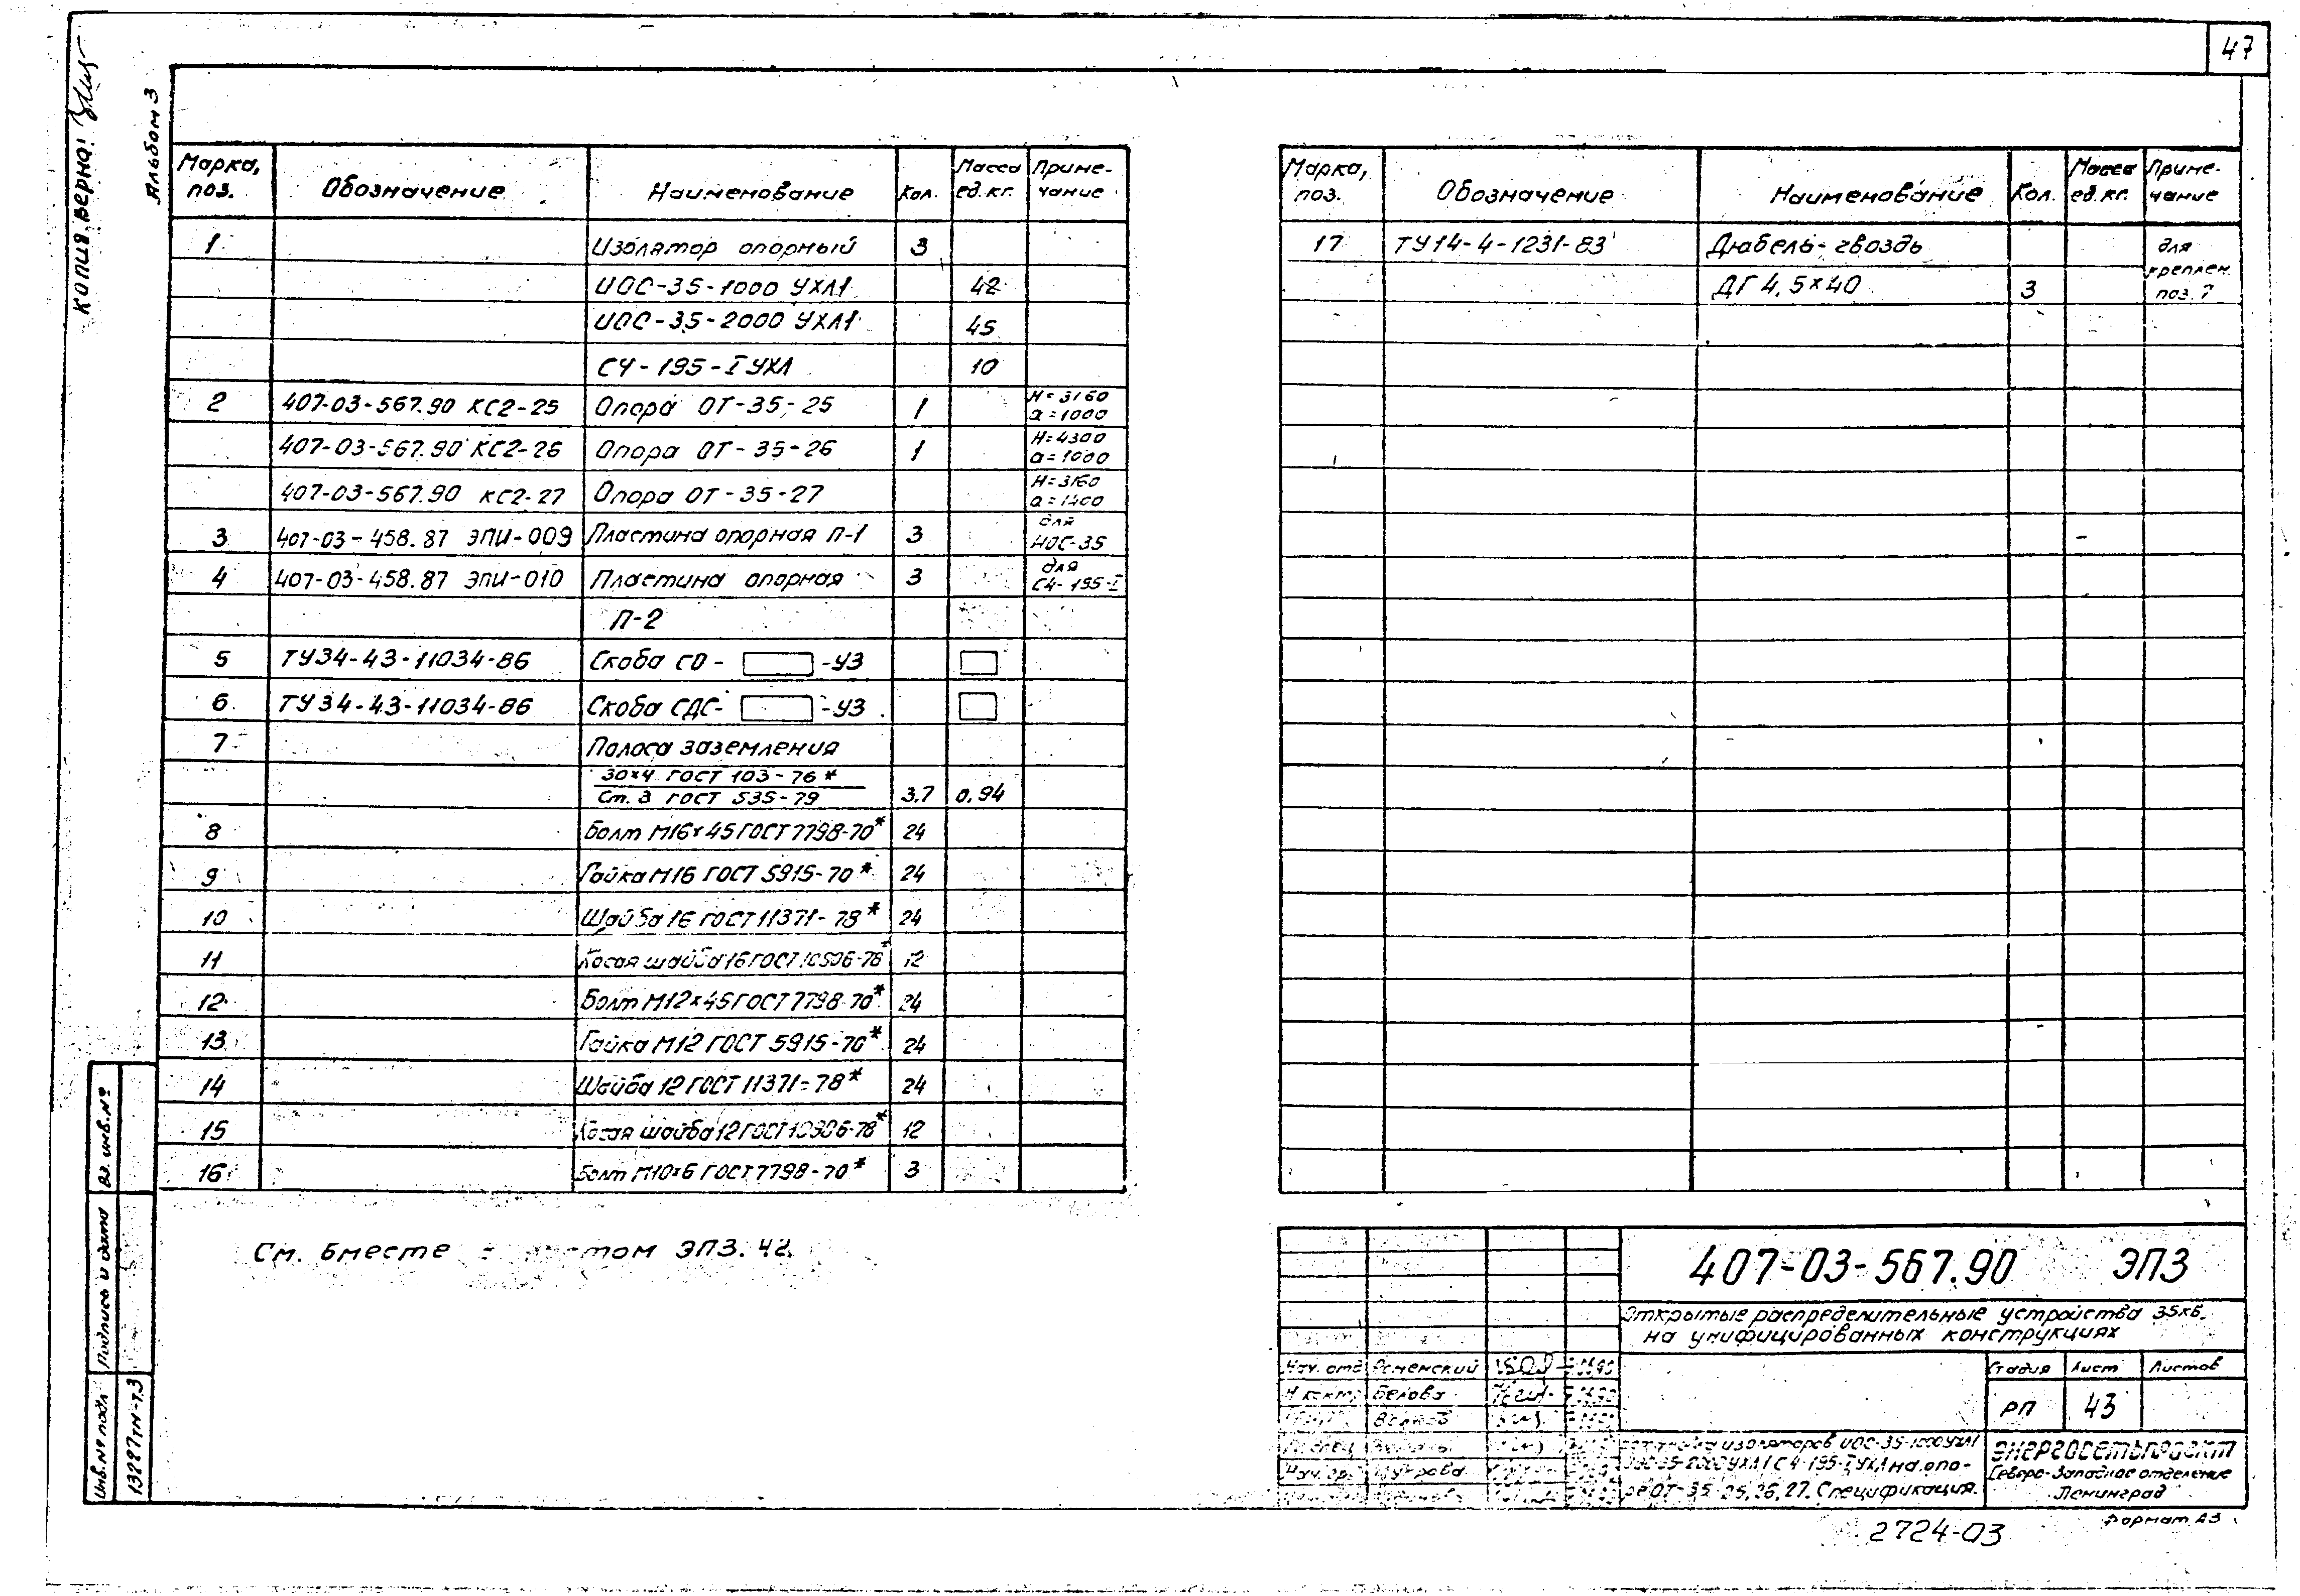 47
Копия верна!
Альбом 3
Марка, поз. Обозначение Наименование Кол. Масса ед. кг. Приме- чание
1 Изолятор опорный 3
ИОС-35-1000 УХЛ1 42
ИОС-35-2000 УХЛ1 45
С4-195-I УХЛ 10
2 407-03-567.90 КС2-25 Опора ОТ-35-25 1 H=3160 a=1000
407-03-567.90 КС2-26 Опора ОТ-35-26 1 H=4300 a=1000
407-03-567.90 КС2-27 Опора ОТ-35-27 H=3160 a=1400
3 407-03-458.87 ЭПИ-009 Пластина опорная П-1 3 для ИОС-35
4 407-03-458.87 ЭПИ-010 Пластина опорная 3 для С4-195-I
П-2
5 ТУ34-43-11034-86 Скоба СО- -УЗ
6 ТУ34-43-11034-86 Скоба СДС- -УЗ
7 Полоса заземления
30×4 ГОСТ 103-76*
Ст. 3 ГОСТ 535-79 3,7 0,94
8 Болт М16×45 ГОСТ 7798-70* 24
9 Гайка М16 ГОСТ 5915-70* 24
10 Шайба 16 ГОСТ 11371-78* 24
11 Косая шайба 16 ГОСТ 10906-78* 12
12 Болт М12×45 ГОСТ 7798-70* 24
13 Гайка М12 ГОСТ 5915-70* 24
14 Шайба 12 ГОСТ 11371-78* 24
15 Косая шайба 12 ГОСТ 10906-78* 12
16 Болт М10×6 ГОСТ 7798-70* 3
См. вместе ЭП3.42.
Марка, поз. Обозначение Наименование Кол. Масса ед. кг. Приме- чание
17 ТУ14-4-1231-83 Дюбель-гвоздь для
креплен.
ДГ 4,5×40 3 поз. 7
407-03-567.90 ЭП3
Открытые распределительные устройства 35кВ
на унифицированных конструкциях
Нач. отд Роменский
Н контр Белова
Стадия Лист Листов
РП 43
Нач. гр.
изоляторов ИОС-35-1000УХЛ1
ИОС-35-2000УХЛ1 С4-195-I УХЛ на опо-
ре ОТ-35-25,26,27. Спецификация.
Энергосетьпроект
Северо-Западное отделение
Ленинград
2724-03
Формат А3
Вз. инв. №
Подпись и дата
Инв. № подл
13287тм-т3